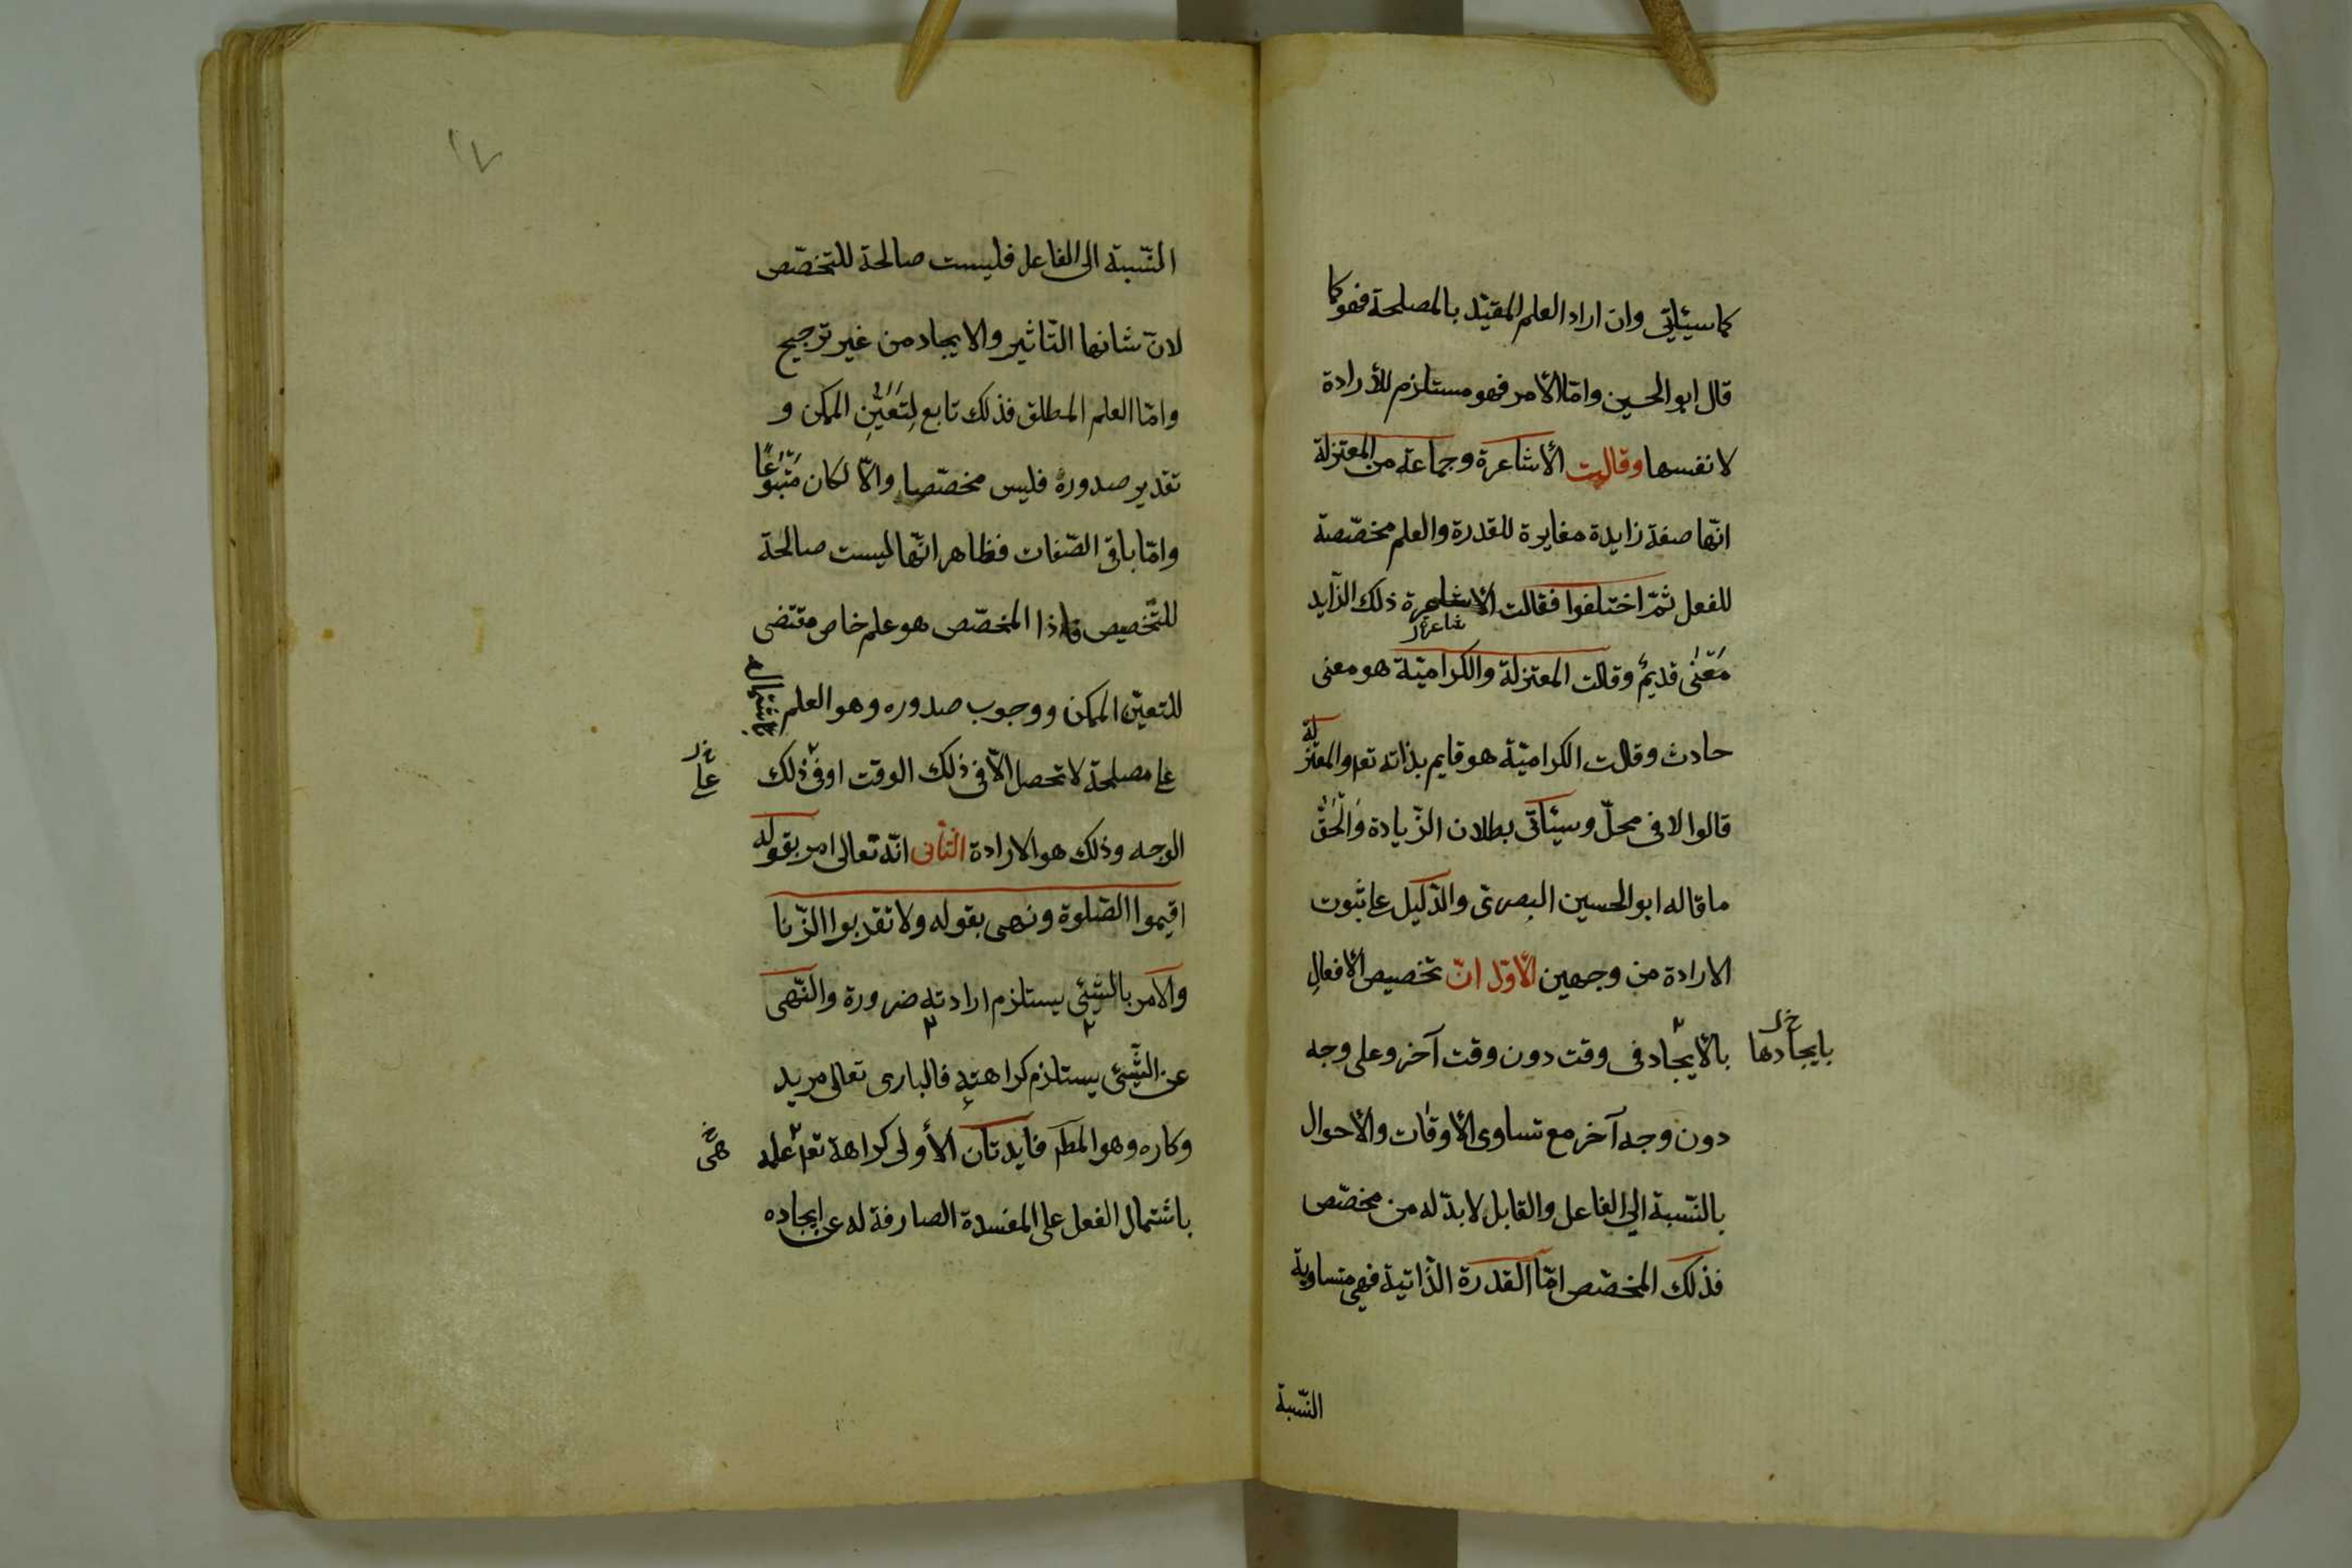 كما سيئاتي وان اراد العلم المقيّد بالمصلحة فهو كما
قال ابو الحسين وامّا الأمر فهو مستلزم للأرادة
لا نفسها وقالت الأشاعرة وجماعة من المعتزلة
انّها صفة زايدة مغايرة للقدرة والعلم مخصّصة
للفعل ثمّ اختلفوا فقالت الأشاعرة ذلك الزّايد
شاعرة
مَعْنٰى قديمٌ وقالت المعتزلة والكراميّة هو معنى
حادث وقالت الكراميّة هو قايم بذاته تعہ والمعتزلة
قالوا لا فى محلّ وسيئاتى بطلان الزّيادة وَالْحَقُّ
ما قاله ابو الحسين البصرىّ والدّليل على ثبوت
الارادة من وجهين الأوّل انّ تخصيص الأفعالِ
بالأيجاد فى وقت دون وقت آخر وعلى وجه
بايجادها خ ل
دون وجه آخر مع تساوى الأوقات والأحوال
بالنّسبة الي الفاعل والقابل لابدّ له من مخصّص
فذلك المخصّص امّا القدرة الذّاتية فهى متساوية
النّسبة
١٧
النّسبة الى الفاعل فليست صالحة للتخصّص
لانّ شانها التّاثير والايجاد من غير ترجيح
وامّا العلم المطلق فذلك تابع لِتَعَيُّنِ الممكن و
تقدير صدوره فليس مخصّصا والّا لكان مَتْبُوعًا
وامّا باقى الصّفات فظاهر انّها ليست صالحة
للتّخصيص فاذا المخصّص هو علم خاص مقتضى
للتعيّن الممكن ووجوب صدوره وهو العلم باشتماله
على مصلحة لا تحصل الّا فى ذلك الوقت او فى ذلك
على خ ل
الوجه وذلك هو الارادة الثّانى انّه تعالى امر بقوله
اقيموا الصّلوة ونهى بقوله ولا تقربوا الزّنا
والأمر بالشّيئ يستلزم ارادته ضرورة والنّهى
عن الشّيئ يستلزم كراهته فالبارى تعالى مريد
وكاره وهو المطہ فايدتان الأولى كراهة تعہ علمه
هى خ
باشتمال الفعل على المفسدة الصارفة له عن ايجاده